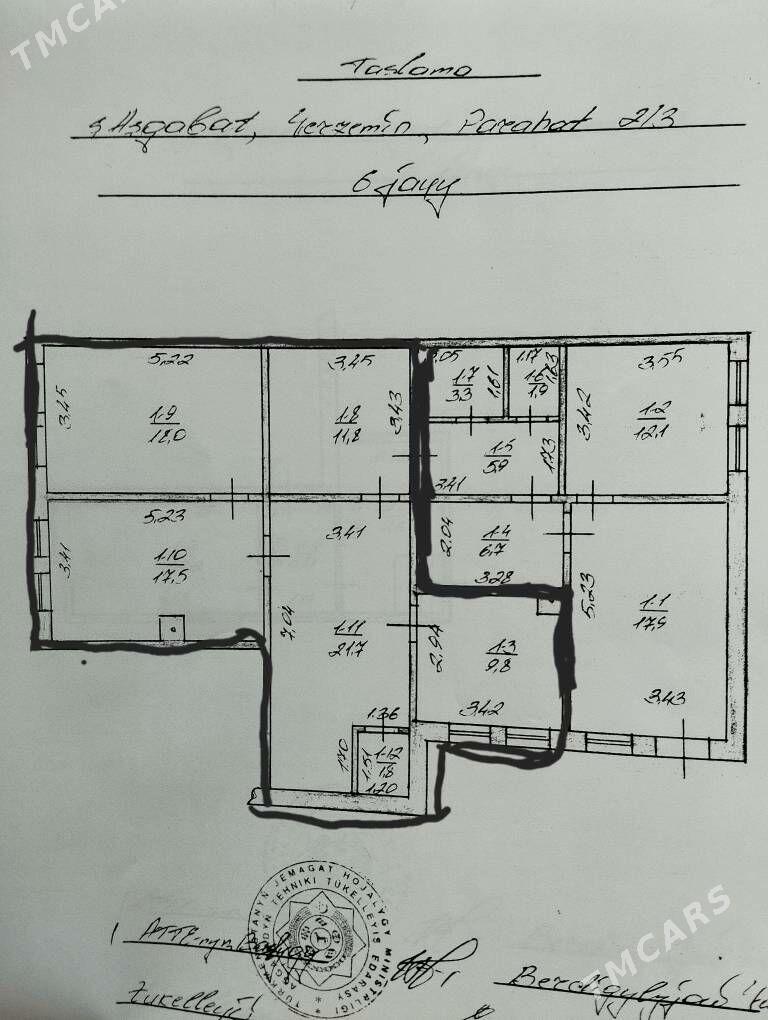 TMCARS
Taslama
ş Aşgabat, Ýerzemin, Parahat 2/3
6 jaýy
5,22
3,45
1-9
18,0
3,45
1-8
11,8
3,43
1-7
3,3
1,81
1,17
1-6
1,9
3,55
3,42
1-2
12,1
1-5
5,9
1,73
3,41
5,23
3,41
1-10
17,5
3,41
7,04
1-11
21,7
2,04
1-4
6,7
3,28
5,23
1-1
17,9
3,43
2,94
1-3
9,8
3,42
1,36
1,70
1,51
1-12
1,8
1,20
JEMAGAT HOJALYGY MINISTRLIGI
TEHNIKI TÜKELLEÝIŞ EDARASY
TMCARS